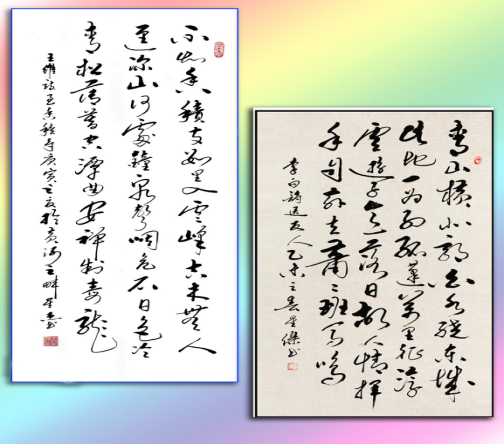 不知香積寺數里入雲峰古木無人
逕深山何處鐘泉聲咽危石日色冷
青松薄暮空潭曲安禪制毒龍
王維詩過香積寺庚寅之夏於黄河之畔
青山橫北郭白水繞東城
此地一為別孤蓬萬里征浮
雲遊子意落日故人情揮
手自茲去蕭蕭班馬鳴
李白詩送友人乙未之春星傑書